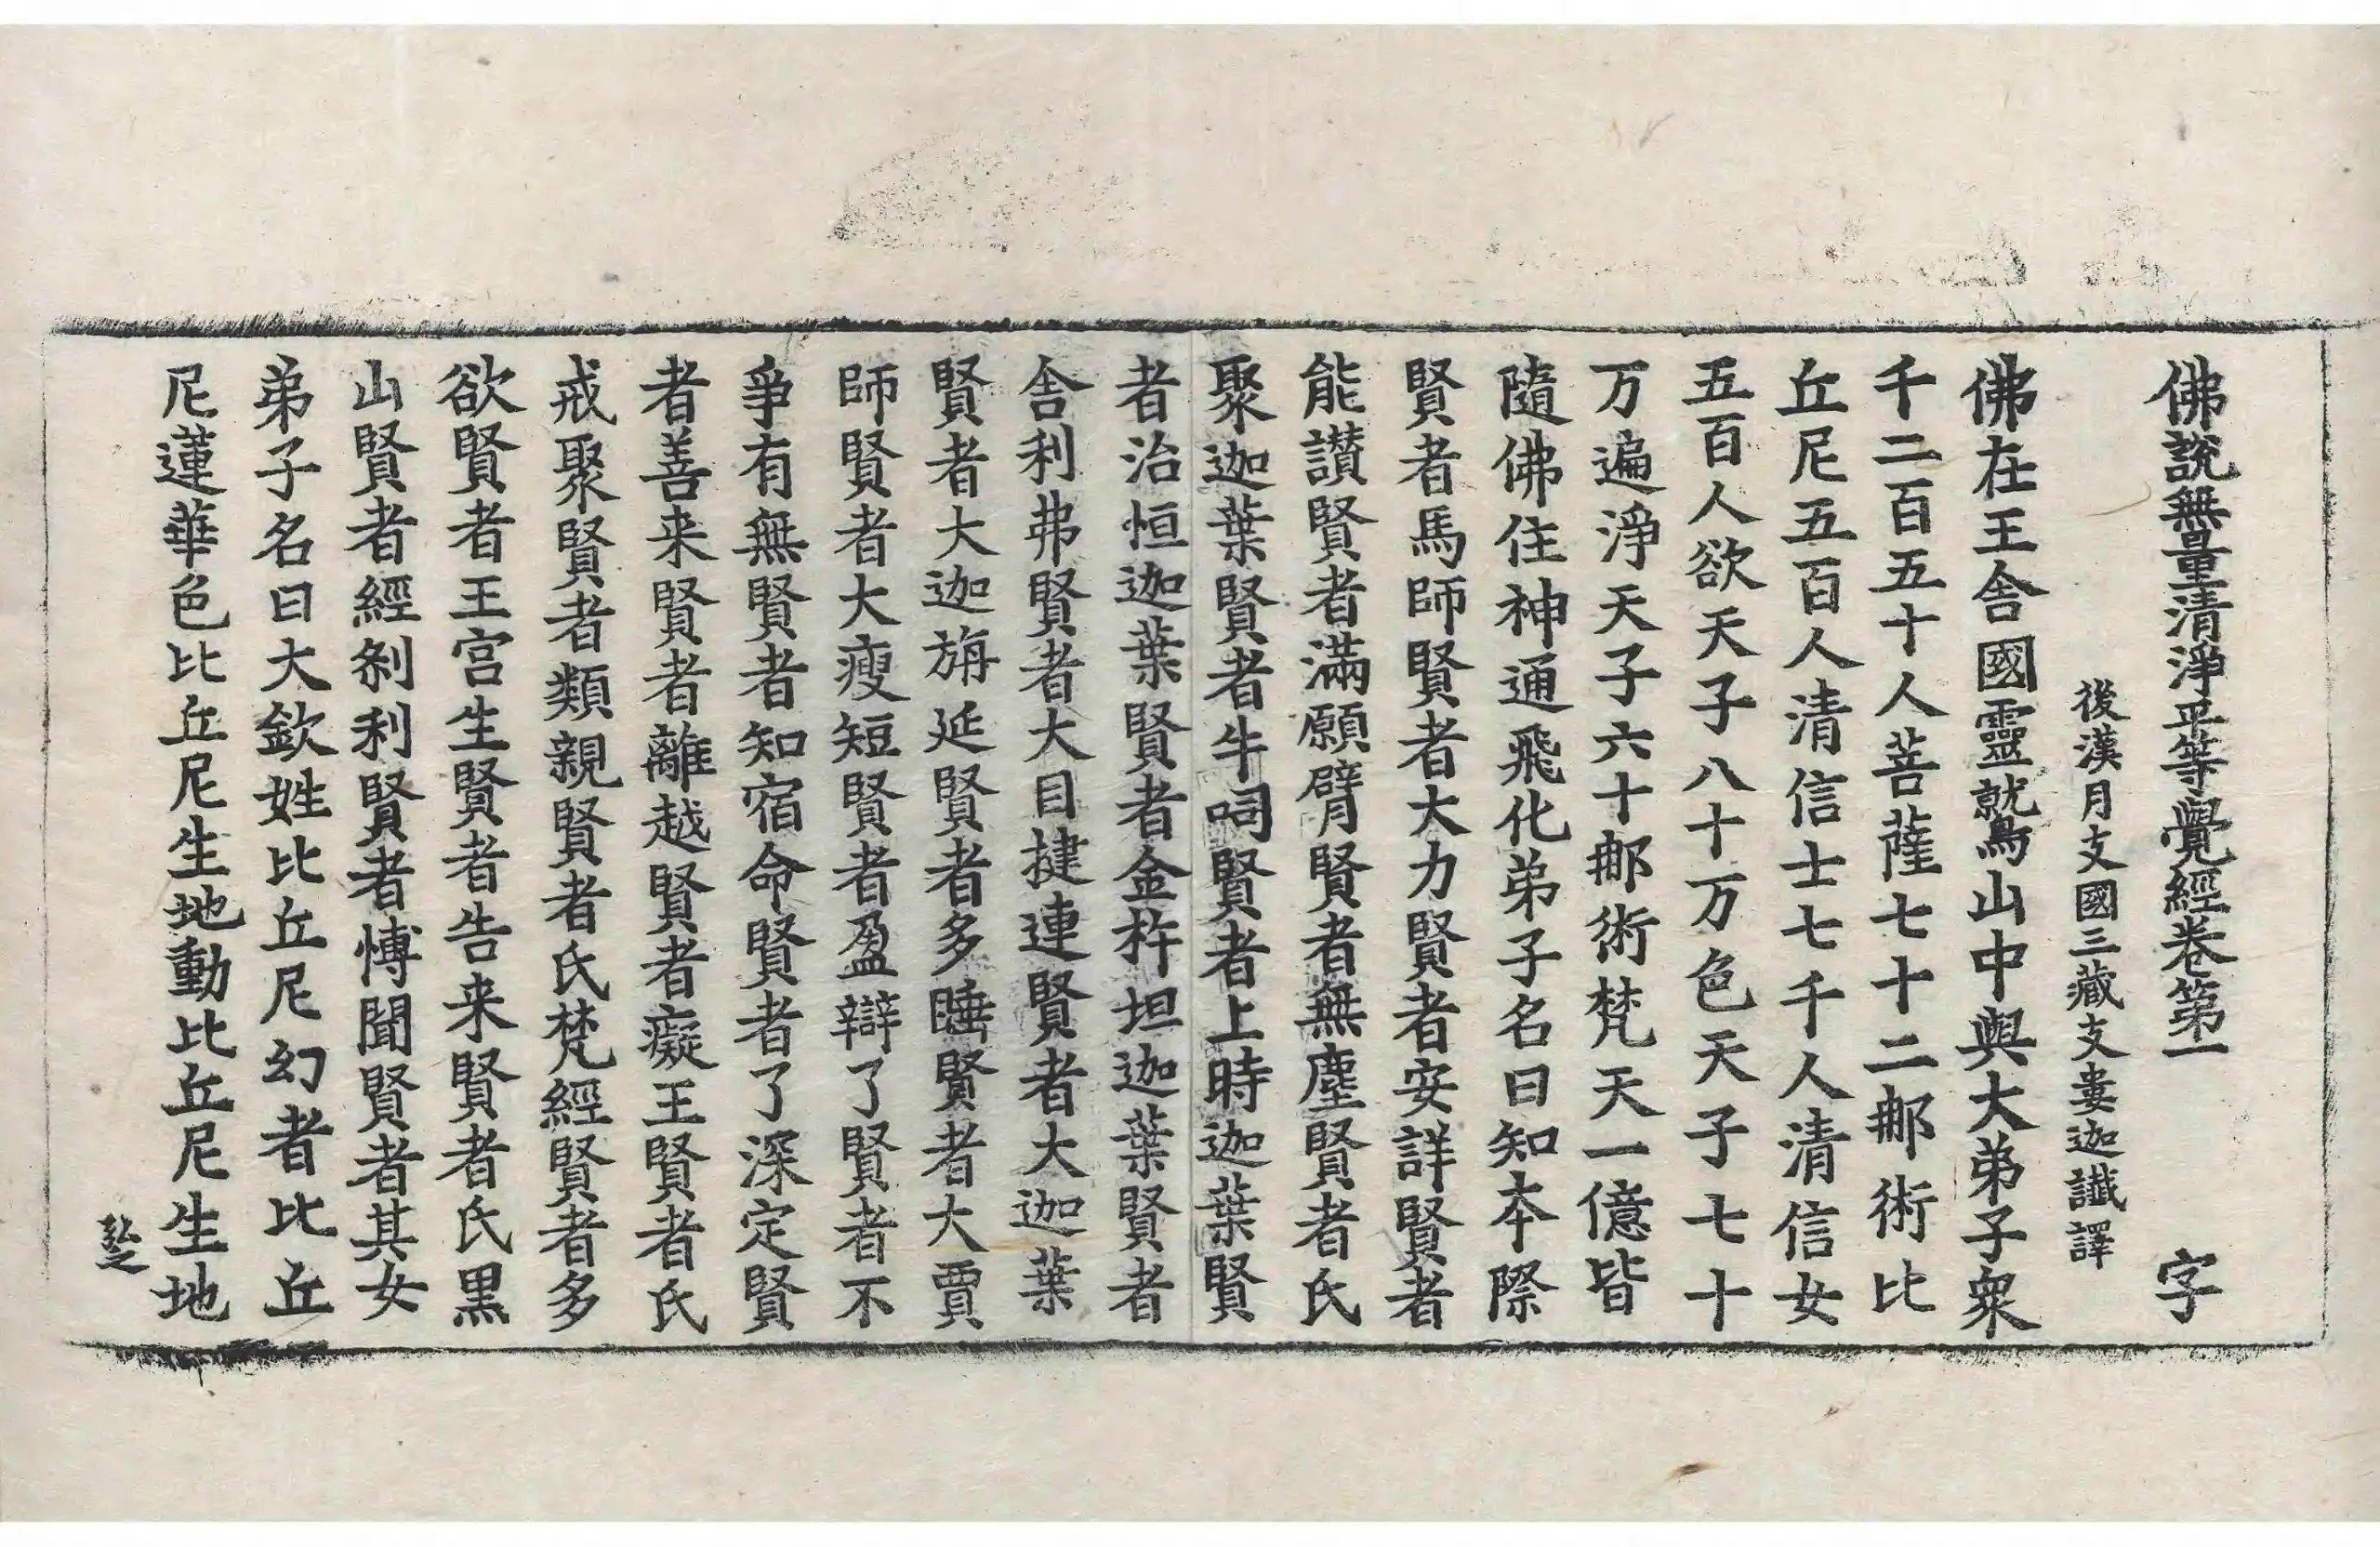 佛說無量清淨平等覺經卷第一　字
後漢月支國三藏支婁迦讖譯
佛在王舍國靈鷲山中與大弟子衆
千二百五十人菩薩七十二那術比
丘尼五百人清信士七千人清信女
五百人欲天子八十万色天子七十
万遍淨天子六十那術梵天一億皆
隨佛住神通飛化弟子名曰知本際
賢者馬師賢者大力賢者安詳賢者
能讃賢者滿願臂賢者無塵賢者氏
聚迦葉賢者牛呞賢者上時迦葉賢
者治恒迦葉賢者金杵坦迦葉賢者
舍利弗賢者大目揵連賢者大迦葉
賢者大迦旃延賢者多睡賢者大賈
師賢者大瘦短賢者盈辯了賢者不
爭有無賢者知宿命賢者了深定賢
者善来賢者離越賢者癡王賢者氏
戒聚賢者類親賢者氏梵經賢者多
欲賢者王宮生賢者告来賢者氏黑
山賢者經刹利賢者博聞賢者其女
弟子名曰大欽姓比丘尼幻者比丘
尼蓮華色比丘尼生地動比丘尼生地